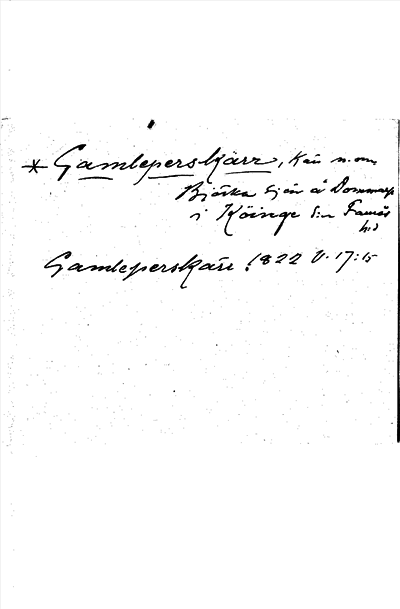 * Gamleperskjärr, Kärr n. om
Björka sjön å Dommarp
i Köinge s:n Faurås
hd
Gamleperskärr 1822 V. 17:15